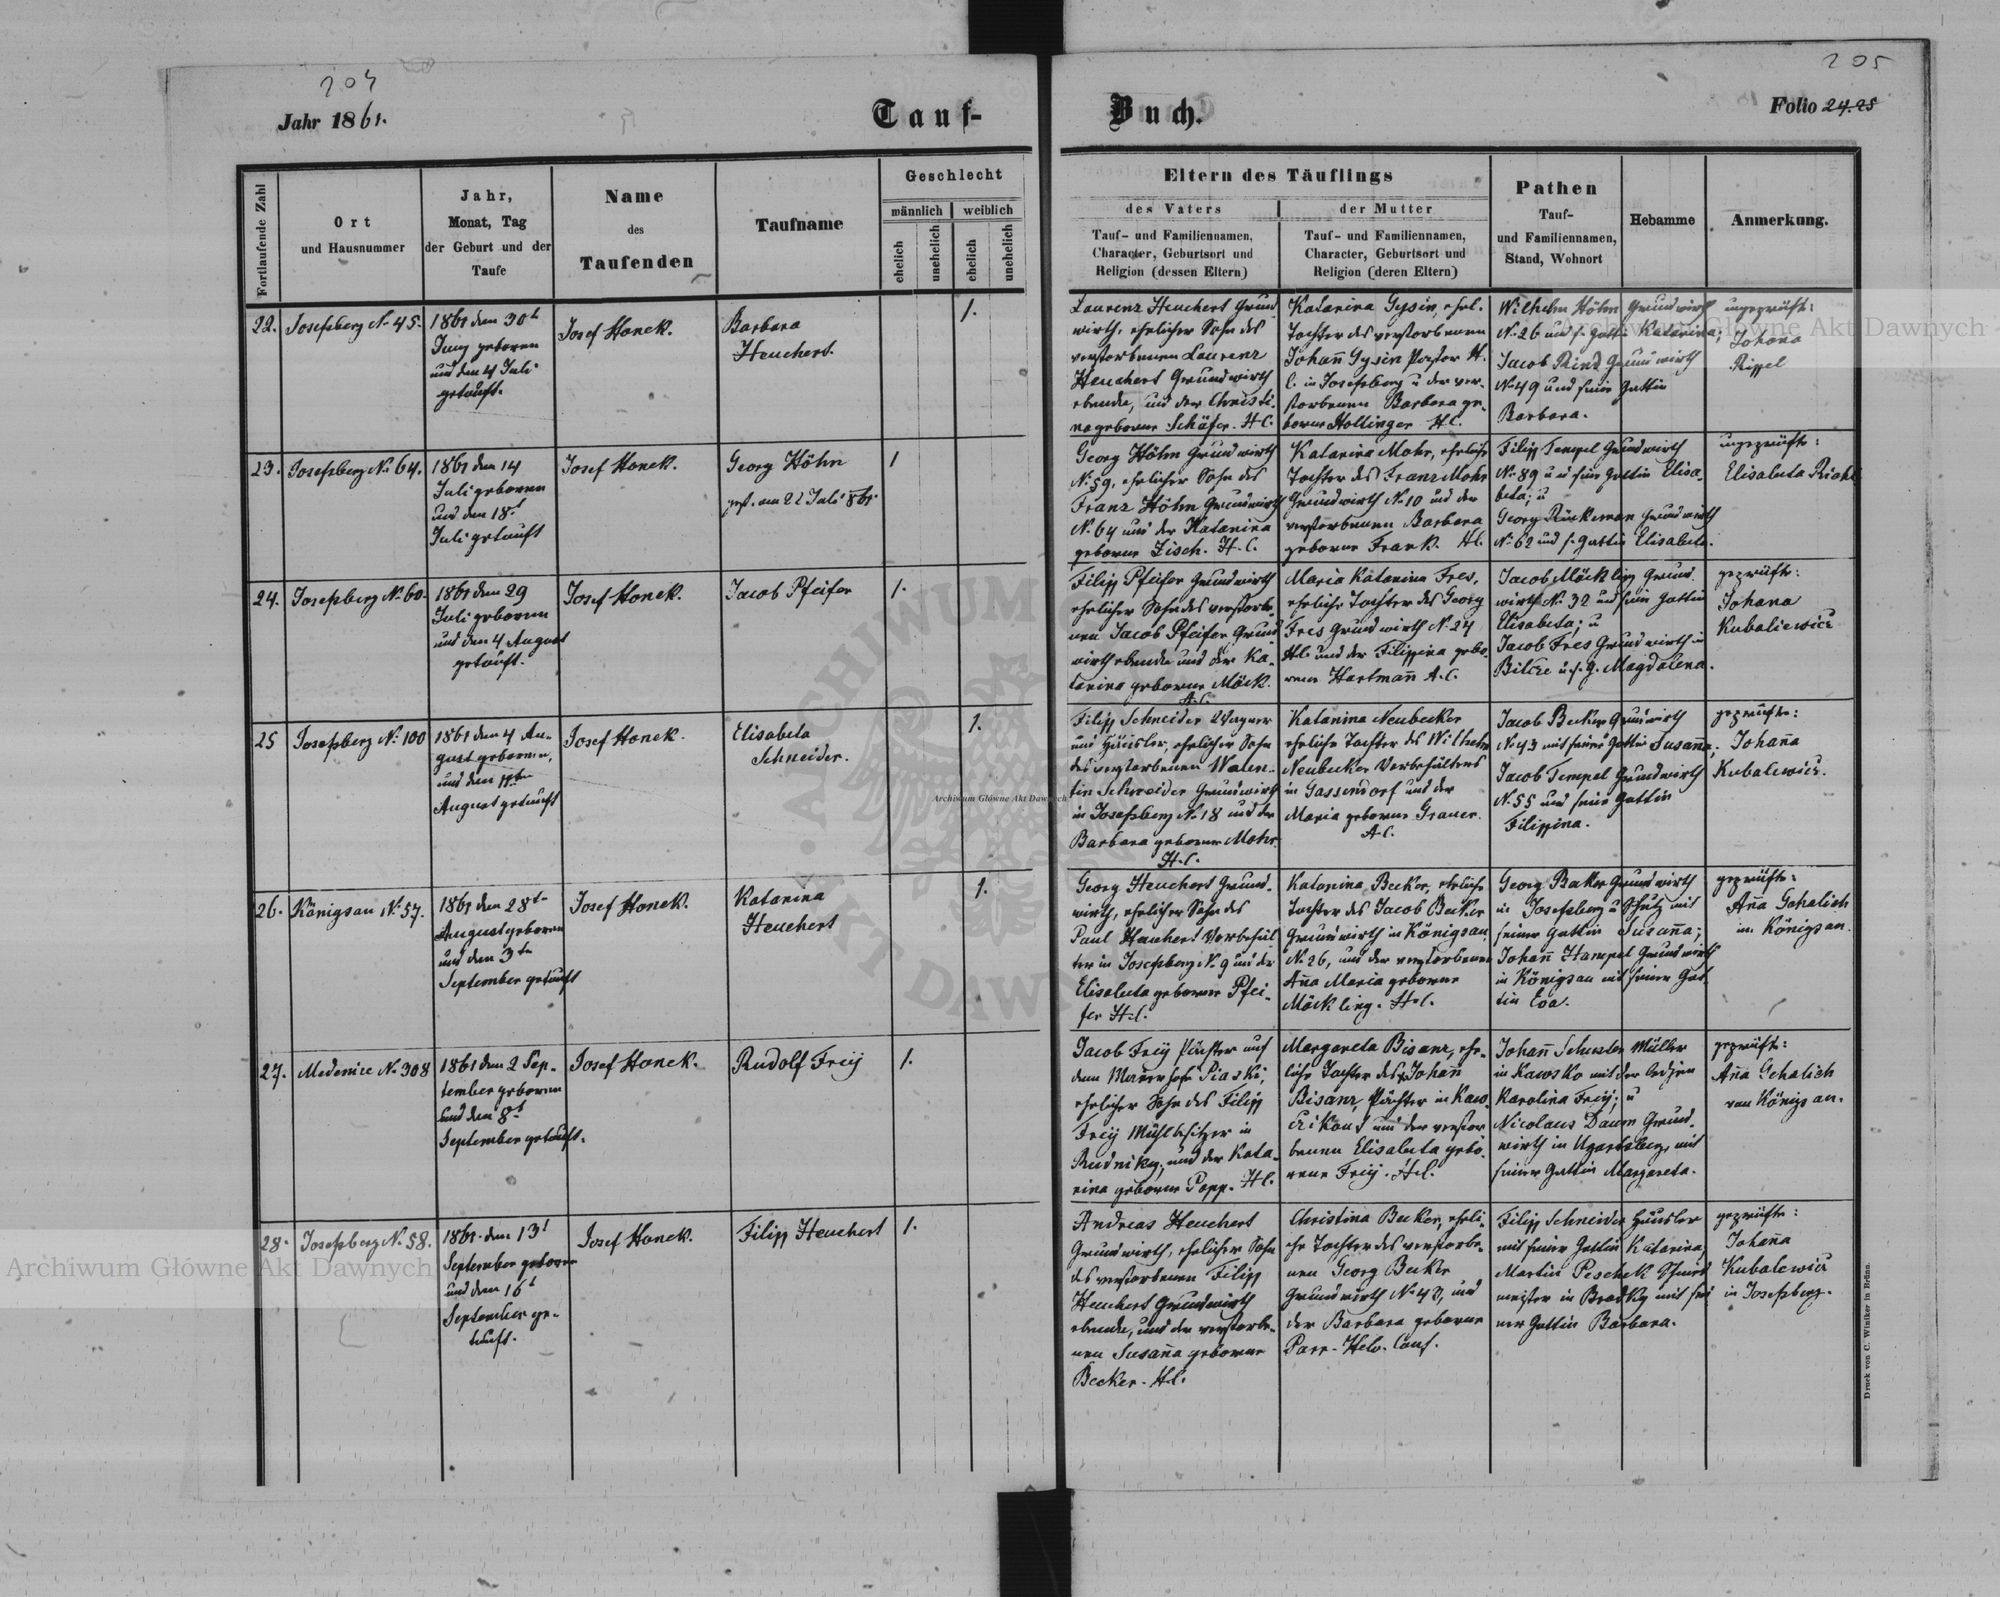 204
205
Jahr 1861.
Tauf-
Buch.
Folio 24.25
Fortlaufende Zahl
Ort
und Hausnummer
Jahr,
Monat, Tag
der Geburt und der
Taufe
Name
des
Taufenden
Taufname
Geschlecht
männlich
weiblich
ehelich
unehelich
ehelich
unehelich
Eltern des Täuflings
des Vaters
Tauf- und Familiennamen,
Character, Geburtsort und
Religion (dessen Eltern)
der Mutter
Tauf- und Familiennamen,
Character, Geburtsort und
Religion (deren Eltern)
Pathen
Tauf-
und Familiennamen,
Stand, Wohnort
Hebamme
Anmerkung.
22.
Josefsberg No 45.
1861 den 30t
Juny geboren
und den 4 Juli
getauft.
Josef Honek.
Barbara
Heuchert.
1.
Laurenz Heuchert Grund
wirth, ehelicher Sohn des
verstorbenen Laurenz
Heuchert Grundwirth
ebenda, und der Christi-
na geborne Schäfer. H.C.
Katarina Gysin, ehel.
Tochter des verstorbenen
Johan̄ Gysin Pastor H.
C. in Josefsberg u der ver-
storbenen Barbara ge-
borne Hollinger H.C.
Wilhelm Höhn Grundwirth
No 26 und s. Gattin Katarina;
Jacob Rind Grundwirth
No 49 und seine Gattin
Barbara.
ungeprüfte:
Johana
Rippel
23.
Josefsberg No 64.
1861 den 14
Juli geboren
und den 18t
Juli getauft
Josef Honek.
Georg Höhn
gest. am 22 Juli 861
1
Georg Höhn Grundwirth
No 59, ehelicher Sohn des
Franz Höhn Grundwirth
No 64 und der Katarina
geborne Zisch. H.C.
Katarina Mohr, eheliche
Tochter des Franz Mohr
Grundwirth No 10 und der
verstorbenen Barbara
geborne Frank. H.C.
Filipp Tempel Grundwirth
No 89 und seine Gattin Elisa-
beta; u
Georg Rückeman Grundwirth
No 62 und s. Gattin Elisabeta.
ungeprüfte:
Elisabeta Riahl
24.
Josefsberg No 60.
1861 den 29
Juli geboren
und den 4 August
getauft.
Josef Honek.
Jacob Pfeifer
1.
Filipp Pfeifer Grundwirth
ehelicher Sohn des verstorbe-
nen Jacob Pfeifer Grund
wirth ebenda und der Ka-
tarina geborne Möck.
A.C.
Maria Katarina Fres,
eheliche Tochter des Georg
Fres Grundwirth No 24
H.C. und der Filippina gebo-
rene Hartman̄ A.C.
Jacob Möckling Grund.
wirth No 32 und seine Gattin
Elisabeta; u
Jacob Fres Grundwirth in
Bilcze u s. g. Magdalena.
geprüfte:
Johana
Kubaliewicz
25
Josefsberg No 100
1861 den 4 Au-
gust geboren,
und den 11ten
August getauft
Josef Honek.
Elisabeta
Schneider.
1.
Filipp Schneider Wagner
und Häusler, ehelicher Sohn
des verstorbenen Walen-
tin Schneider Grundwirth
in Josefsberg No 18 und der
Barbara geborner Mohr.
H.C.
Katarina Neubecker
eheliche Tochter des Wilhelm
Neubecker Vorbehälters
in Gassendorf und der
Maria geborne Grauer.
A.C.
Jacob Becker Grundwirth
No 43 mit seiner Gattin Susan̄a;
Jacob Tempel Grundwirth
No 55 und seine Gattin
Filippina.
geprüfte:
Johan̄a
Kubalewicz.
26.
Königsau No 57.
1861 den 28t
August geboren
und den 3ten
September getauft
Josef Honek.
Katarina
Heuchert
1.
Georg Heuchert Grund-
wirth, ehelicher Sohn des
Paul Heuchert Vorbehäl
ter in Josefsberg No 9 und der
Elisabeta geborne Pfei-
fer H.C.
Katarina Becker, eheliche
Tochter des Jacob Becker
Grundwirth in Königsau
No 26, und der verstorbenen
An̄a Maria geborne
Möckling. H.C.
Georg Becker Grundwirth
in Josefsberg u Schulz mit
seiner Gattin Susan̄a;
Johan̄ Hampel Grundwirth
in Königsau mit seiner Gat
tin Eva.
geprüfte:
An̄a Gohalich
in Königsau.
27.
Medenice No 308
1861 den 2 Sep-
tember geboren
und den 8t
September getauft.
Josef Honek.
Rudolf Freij
1.
Jacob Freij Pächter auf
dem Meierhofe Piaski,
ehelicher Sohn des Filipp
Freij Mühlbesitzer in
Rudniky, und der Kata-
rina geborne Popp. H.C.
Margareta Bisanz, ehe-
liche Tochter des Johan̄
Bisanz, Pächter in
und der verstor
benen Elisabeta gebo-
rene Freij. H.C.
Johan̄ Schuster Müller
in Kawsko mit der ledigen
Karolina Freij; u
Nicolaus Daum Grund-
wirth in Ugartsberg, mit
seiner Gattin Margareta.
geprüfte:
An̄a Gohalich
von Königsau.
28.
Josefsberg No 58.
1861 den 13t
September geboren
und den 16t
September ge-
tauft.
Josef Honek.
Filipp Heuchert
1.
Andreas Heuchert
Grundwirth, ehelicher Sohn
des verstorbenen Filipp
Heuchert Grundwirth
ebenda, und der verstorbe-
nen Susan̄a geborne
Becker. H.C.
Christina Becker, eheli-
che Tochter des verstorbe-
nen Georg Becker
Grundwirth No 43, und
der Barbara geborne
Parr. Helv. Conf.
Filipp Schneider Häusler
mit seiner Gattin Katarina;
Martin Peschek Schmied
meister in mit sei
ner Gattin Barbara.
geprüfte:
Johan̄a
Kubalewicz
in Josefsberg.
Druck von C. Winiker in Brünn.
Archiwum Główne Akt Dawnych
Archiwum Główne Akt Dawnych
Archiwum Główne Akt Dawnych
ARCHIWUM
AKT DAW